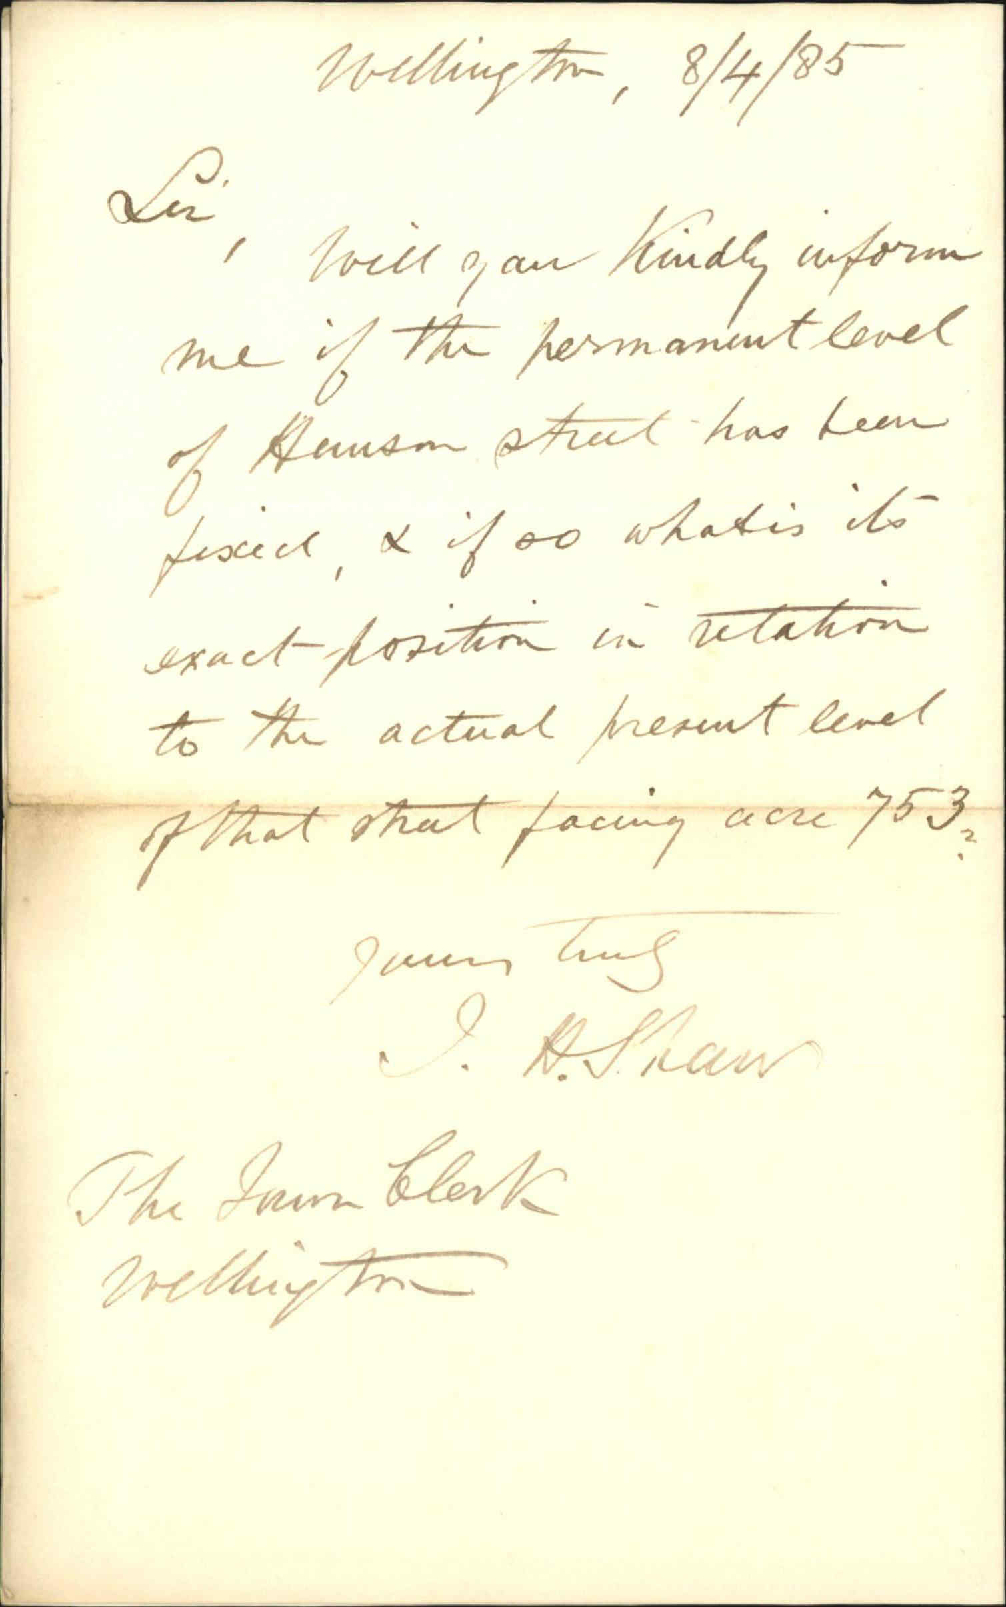 Wellington, 8/4/85
Sir,
Will you Kindly inform
me if the permanent level
of Hanson street has been
fixed, & if so what is its
exact position in relation
to the actual present level
of that street facing acre 753?
Yours truly
J. H. Shaw
The Town Clerk
Wellington